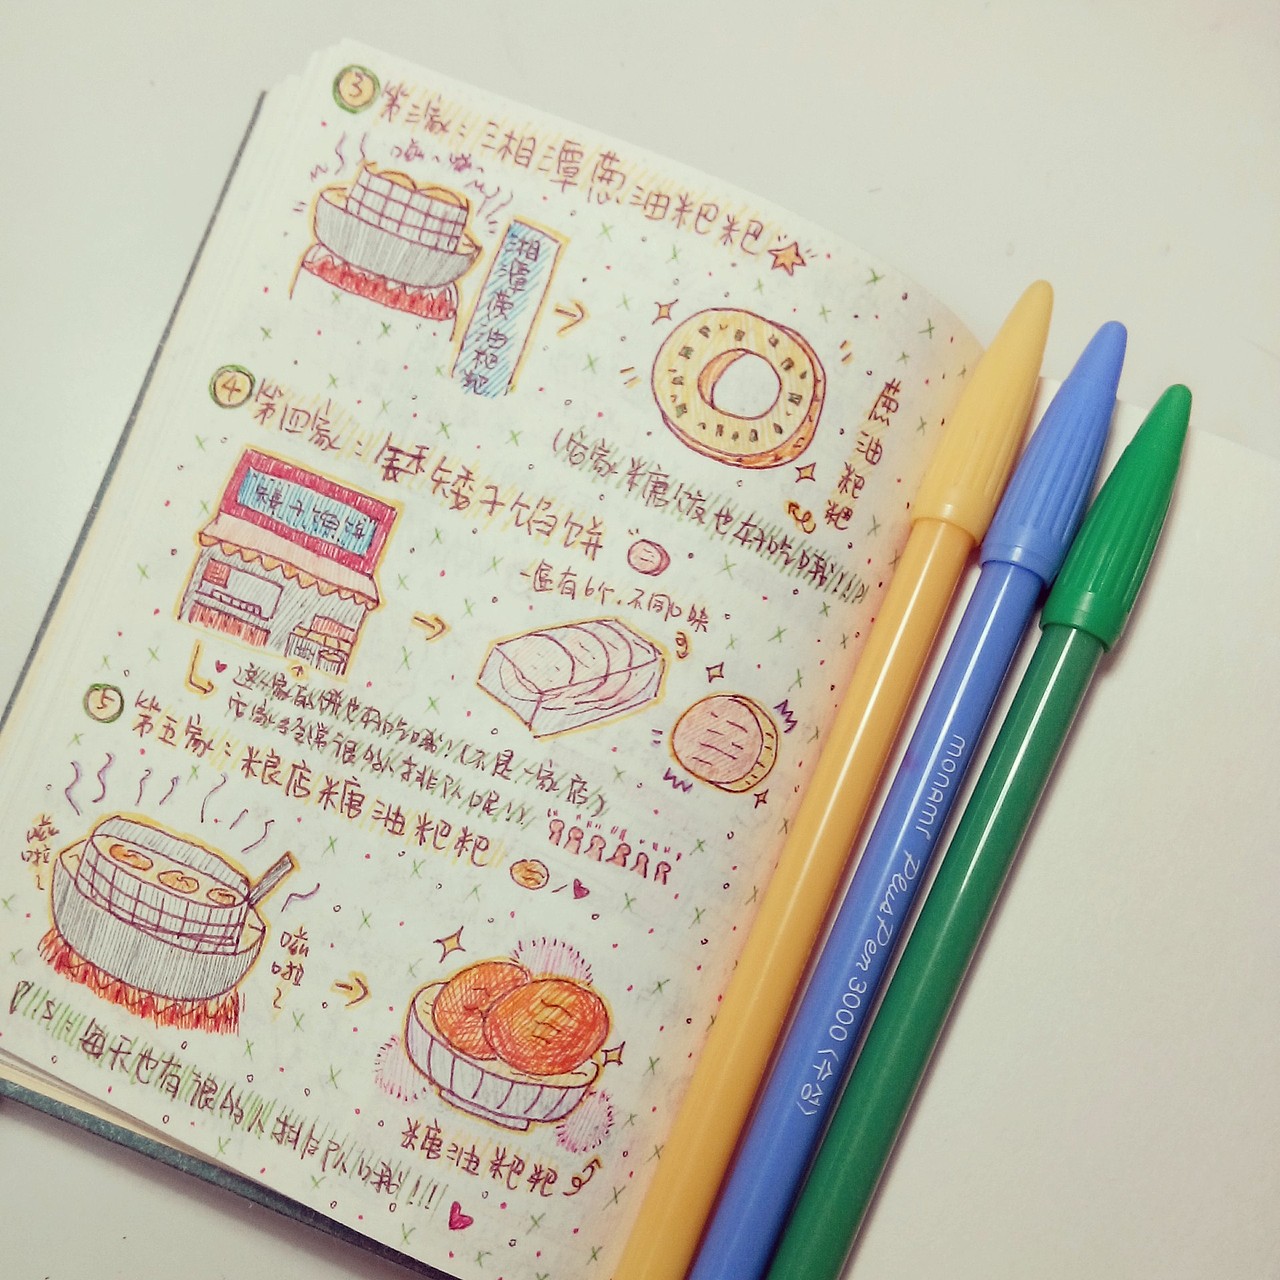 3
第三家：湘潭葱油粑粑
嗞~嗞~
湘潭葱油粑粑
葱油粑粑
(店家糖饺也好吃哦!!!)
4
第四家：馋馋子馅饼
一盒有6个,不同口味
这家的饼也好吃哦!!(不是一家店)
店家经常很多人排队呢!!
5
第五家：粮店糖油粑粑
嗞啦~
嗞啦~
P.S:每天也有很多人排队哦!!!
糖油粑粑
monami Plus Pen 3000 (수성)